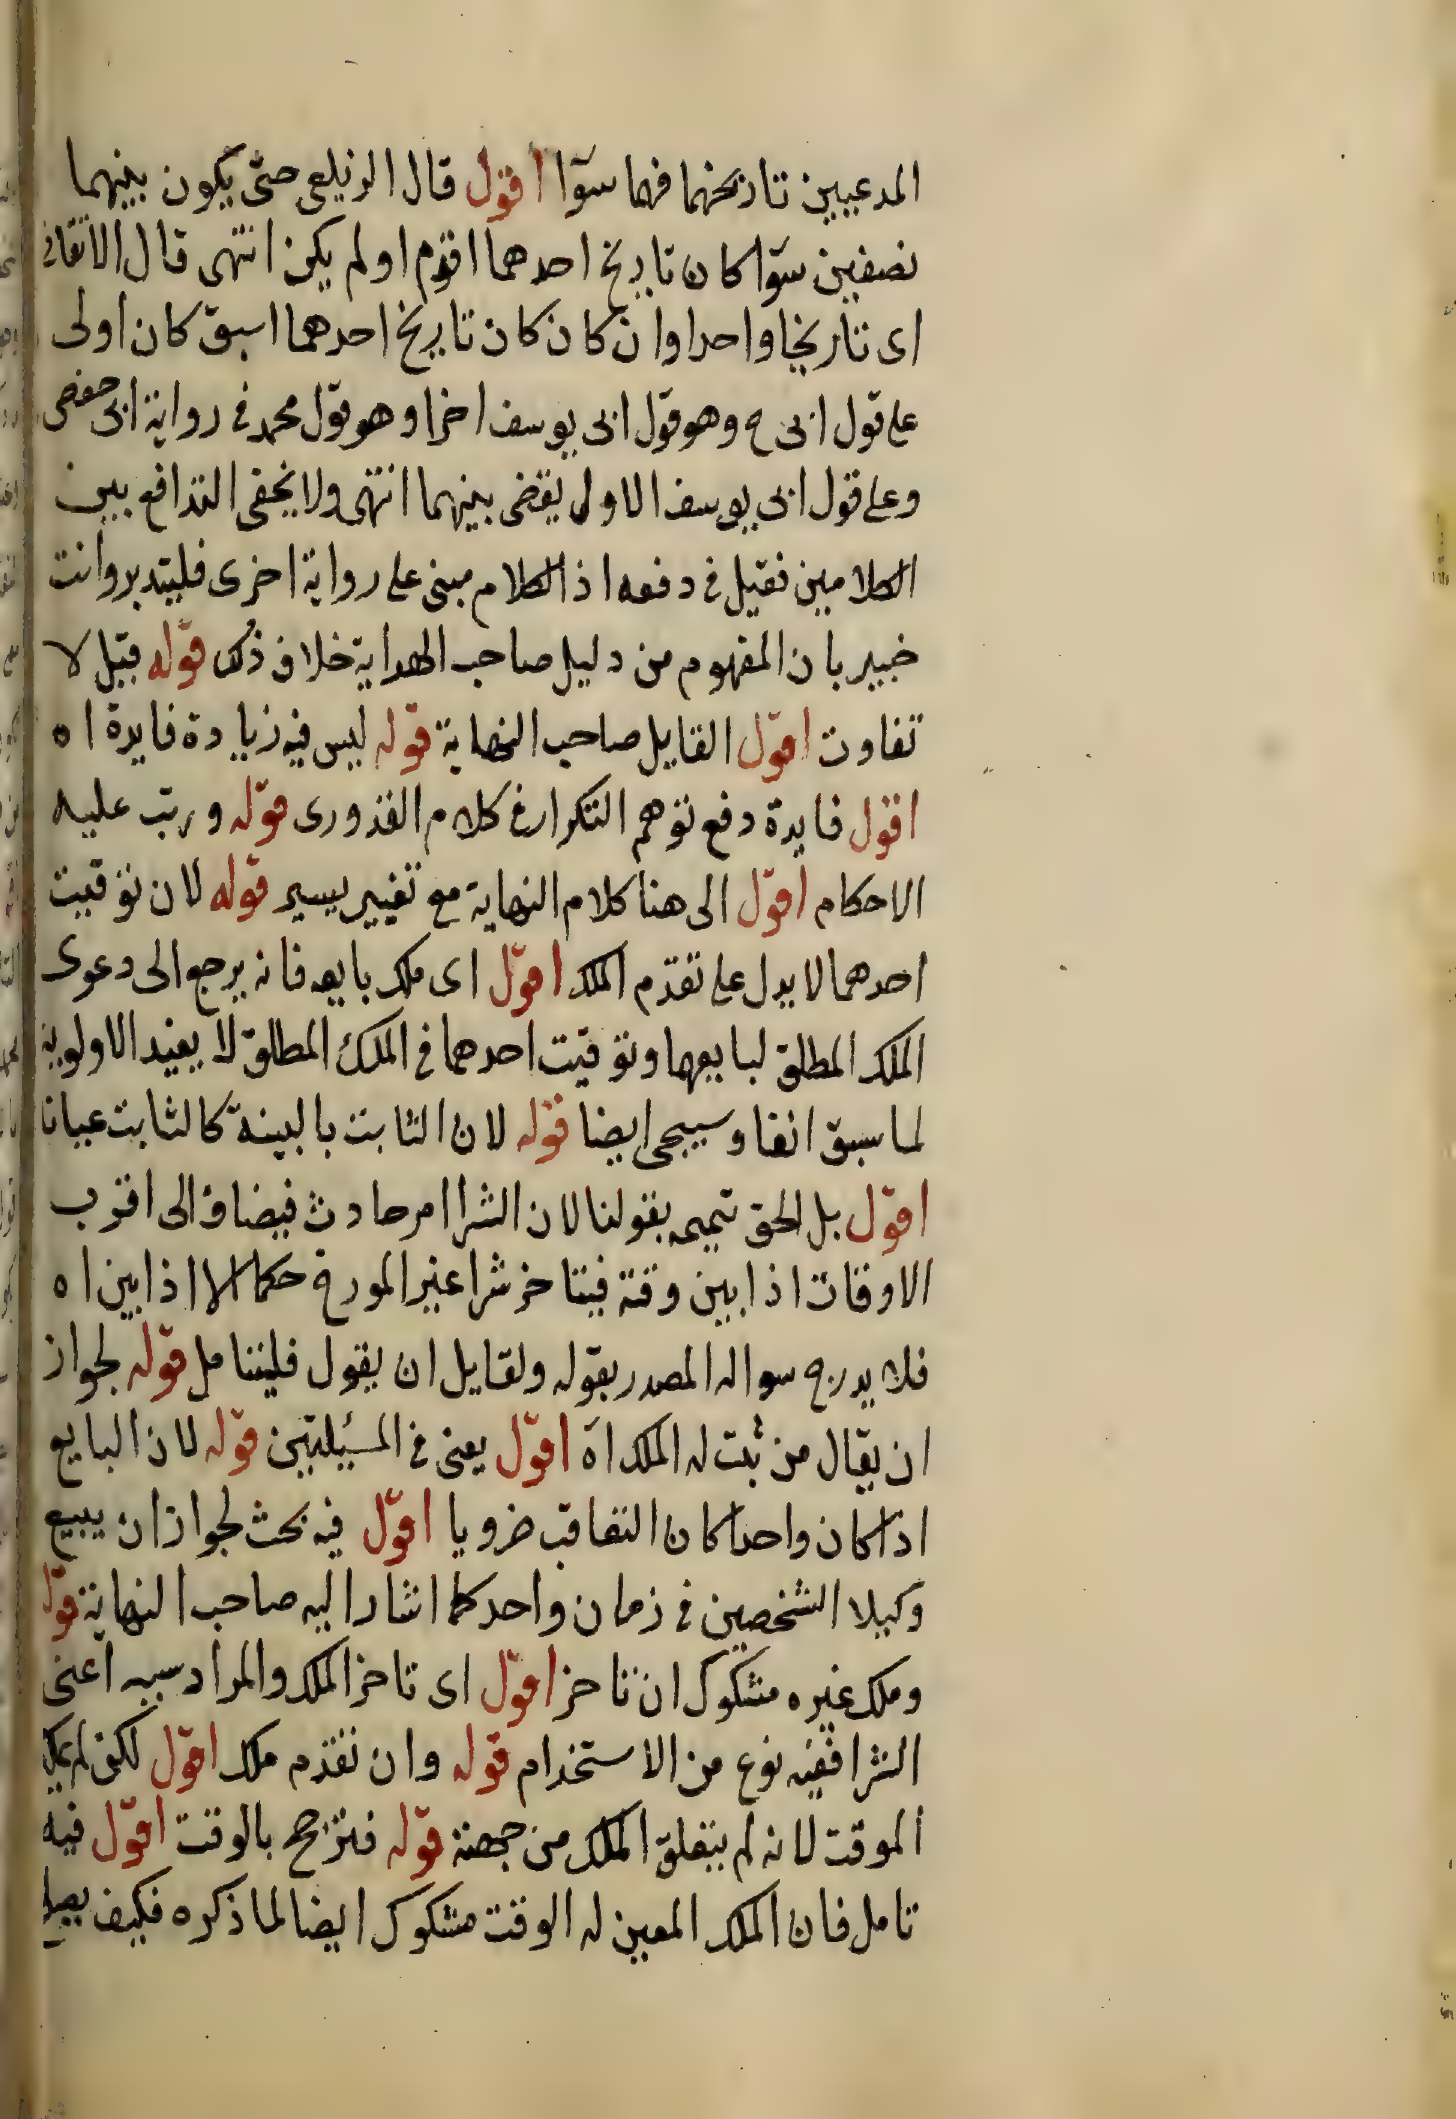 المدعيين تاريخهما فهما سوآا اقول قال الزيلعى حتى يكون بينهما
نصفين سوآا كان تاريخ احدهما اقدم او لم يكن انتهى قال الاتقانى
اى تاريخا واحدا وان كان كان تاريخ احدهما اسبق كان اولى
على قول ابى ح وهو قول ابى يوسف اخرا وهو قول محمد فى رواية ابى حفص
وعلى قول ابى يوسف الاول يقضى بينهما انتهى ولا يخفى التدافع بين
الكلامين فقيل فى دفعه اذ الكلام مبنى على رواية اخرى فليتدبر وانت
خبير بان المفهوم من دليل صاحب الهداية خلاف ذلك قوله قيل لا
تفاوت اقول القايل صاحب النهاية قوله ليس فيه زيادة فايدة اه
اقول فايدة دفع توهم التكرار فى كلام القدورى قوله ورتب عليه
الاحكام اقول الى هنا كلام النهاية مع تغيير يسير قوله لان توقيت
احدهما لا يدل على تقدم الملك اقول اى ملك بايعه فانه يرجع الى دعوى
الملك المطلق لبايعها وتوقيت احدهما فى الملك المطلق لا يفيد الاولوية
لما سبق انفا وسيجى ايضا قوله لان الثابت بالبينة كالثابت عيانا
اقول بل الحق تتميمه بقولنا لان الشرا امر حادث فيضاف الى اقرب
الاوقات اذا بين وقته فيتاخر شرا غير المورخ حكما الا اذا بين اه
فلا يدرج سواله المصدر بقوله ولقايل ان يقول فليتامل قوله لجواز
ان يقال من ثبت له الملك اه اقول يعنى فى المسئلتين قوله لان البايع
اذا كان واحدا كان التعاقب ضرويا اقول فيه بحث لجواز ان يبيع
وكيلا الشخصين فى زمان واحد كما اشار اليه صاحب النهاية قوله
وملك غيره مشكوك ان تاخر اقول اى تاخر الملك والمراد سببه اعنى
الشرا ففيه نوع من الاستخدام قوله وان تقدم ملك اقول لكن لم يملك
الموقت لانه لم يتعلق الملك من جهته قوله فترجح بالوقت اقول فيه
تامل فان الملك المعين له الوقت مشكوك ايضا لما ذكره فكيف يصلح